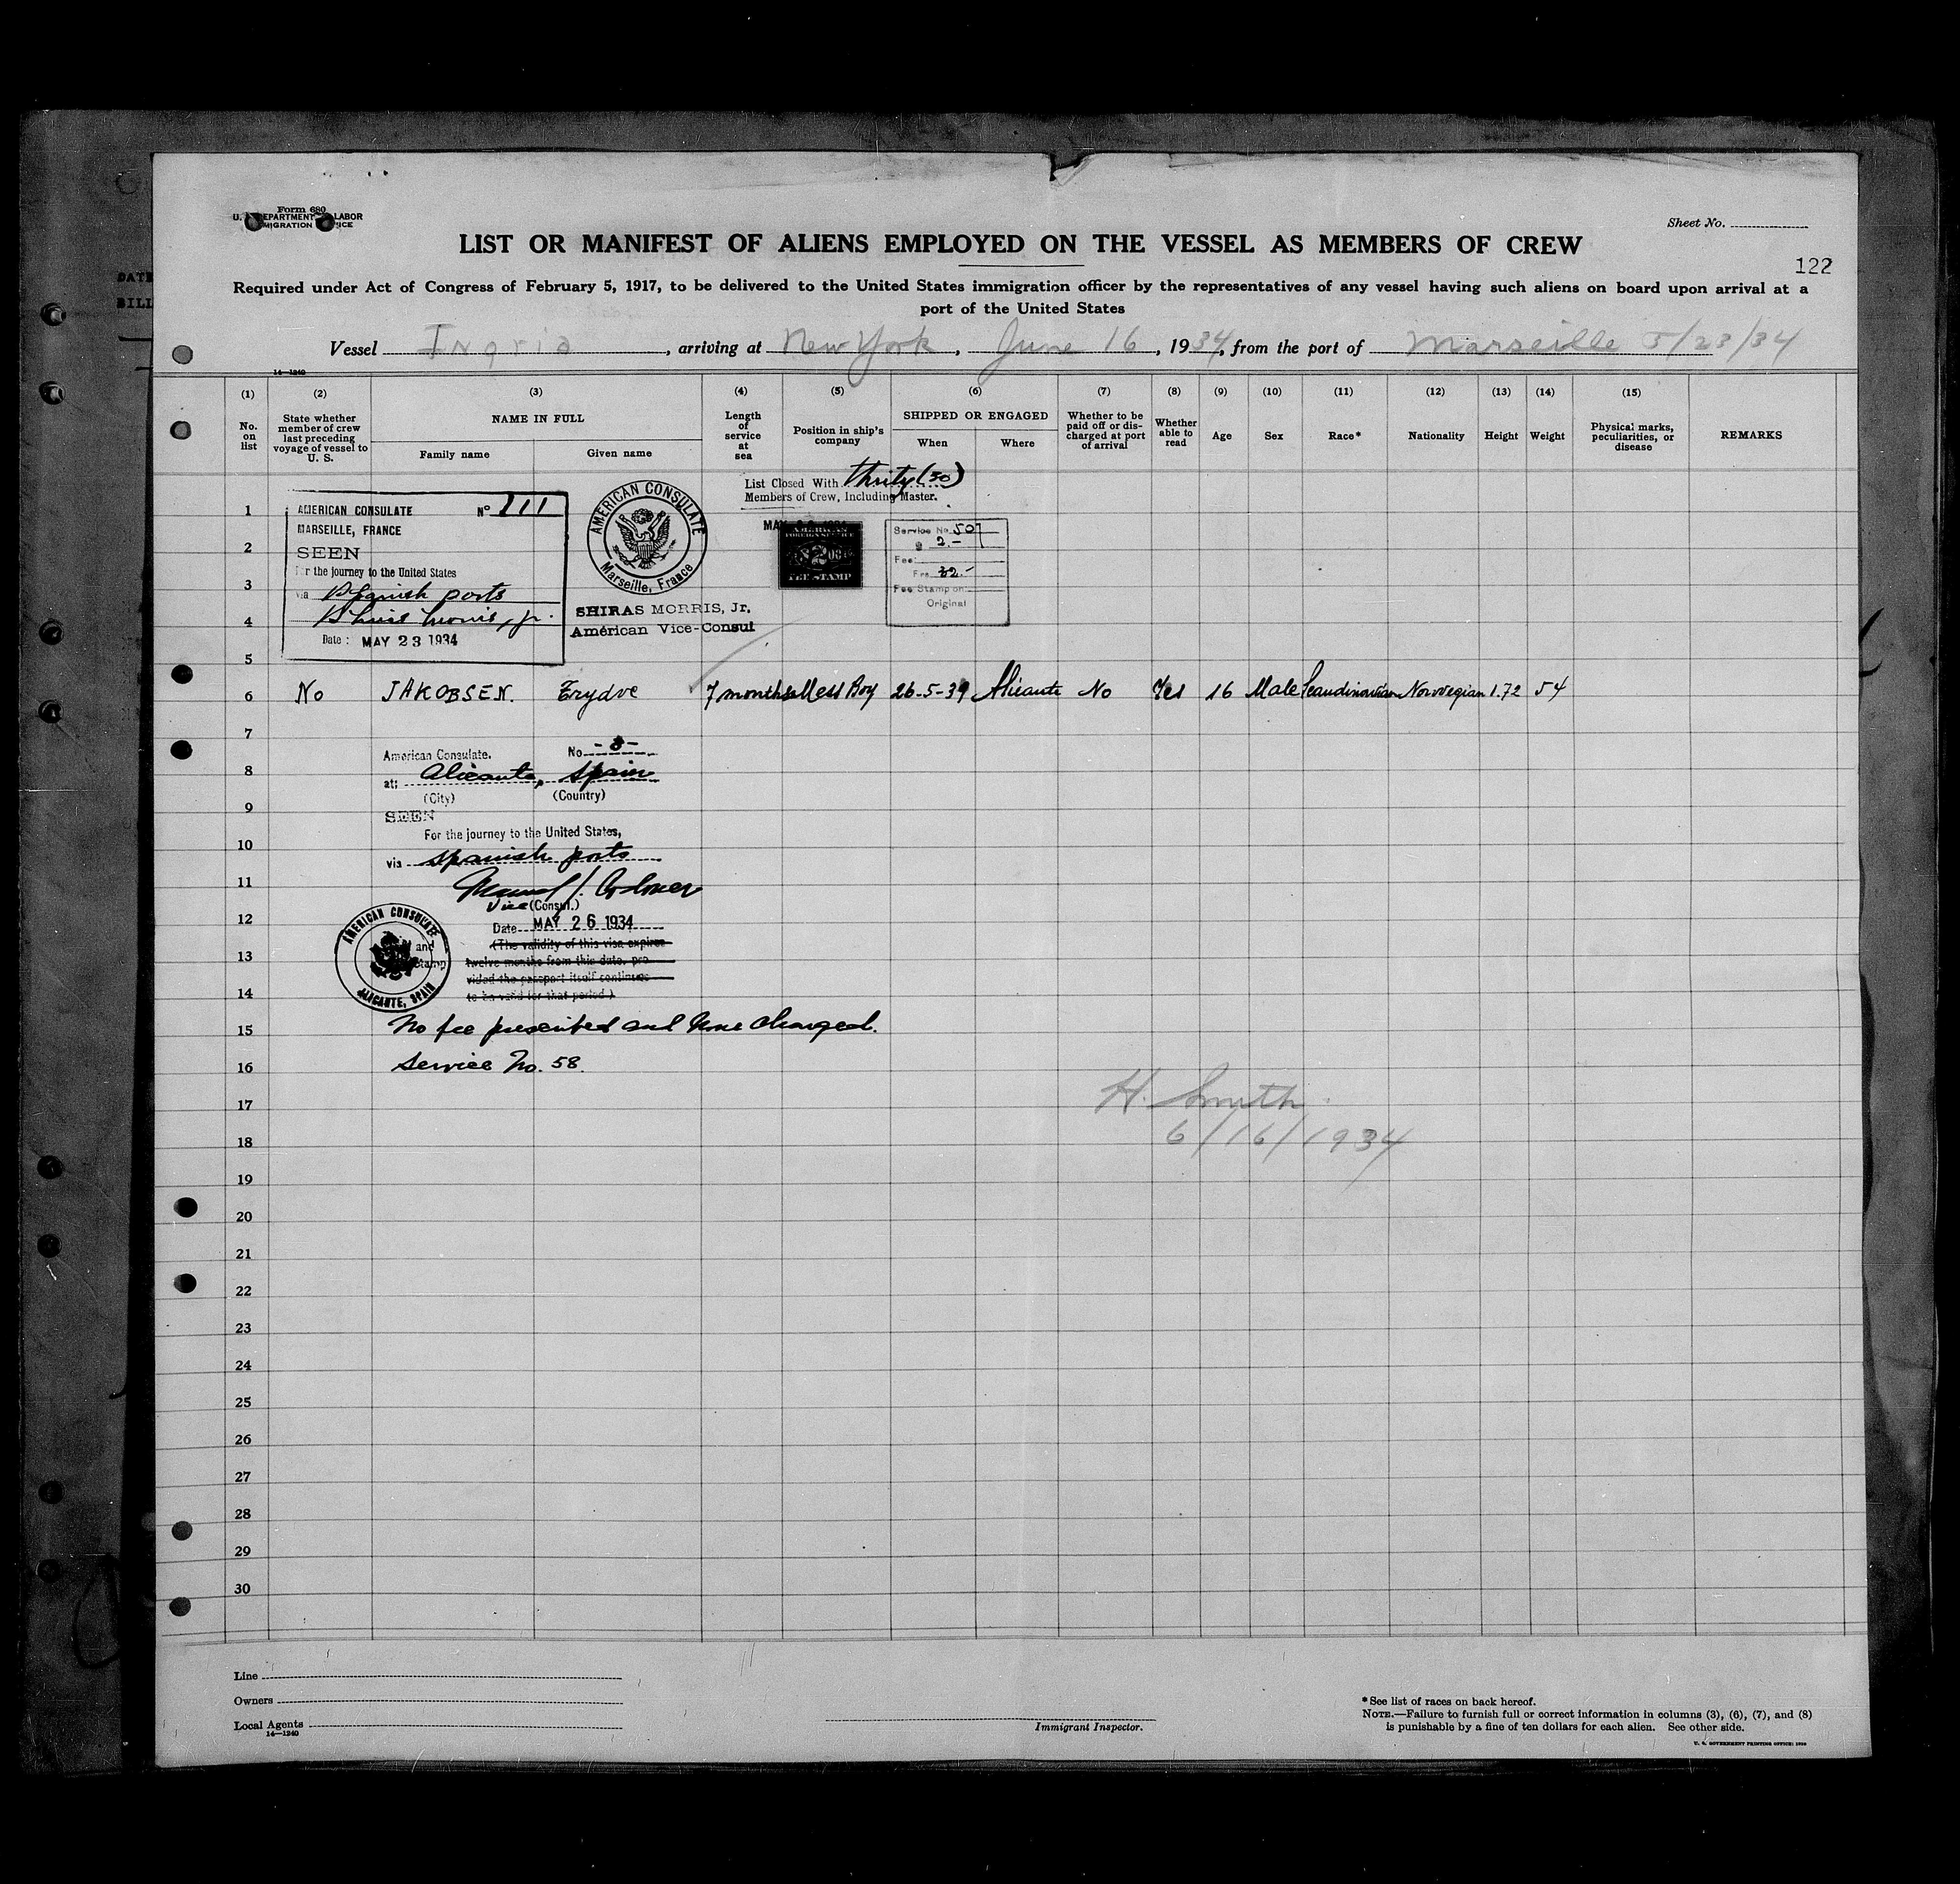 Form 680
U. DEPARTMENT LABOR
MIGRATION ICE
Sheet No.
LIST OR MANIFEST OF ALIENS EMPLOYED ON THE VESSEL AS MEMBERS OF CREW
122
Required under Act of Congress of February 5, 1917, to be delivered to the United States immigration officer by the representatives of any vessel having such aliens on board upon arrival at a
port of the United States
Vessel Ingria, arriving at New York, June 16, 1934, from the port of Marseille 5/23/34
14—1240
(1) (2) (3) (4) (5) (6) (7) (8) (9) (10) (11) (12) (13) (14) (15)
No. on list
State whether member of crew last preceding voyage of vessel to U. S.
NAME IN FULL
Family name
Given name
Length of service at sea
Position in ship's company
SHIPPED OR ENGAGED
When
Where
Whether to be paid off or discharged at port of arrival
Whether able to read
Age
Sex
Race*
Nationality
Height
Weight
Physical marks, peculiarities, or disease
REMARKS
List Closed With thrity (30)
Members of Crew, Including Master.
1
AMERICAN CONSULATE No 111
MARSEILLE, FRANCE
2
SEEN
For the journey to the United States
3
via Spanish ports
4
Shiras Morris, Jr.
Date: MAY 23 1934
5
AMERICAN CONSULATE
Marseille, France
SHIRAS MORRIS, Jr.
American Vice-Consul
AMERICAN
FOREIGN SERVICE
FEE STAMP
Service No. 507
$ 2.-
Fee:
Frs 32.-
Fee Stamp on
Original
6 No JAKOBSEN. Trydve 7 months Mess Boy 26-5-34 Alicante No Yes 16 Male Scandinavian Norwegian 1.72 54
7
American Consulate. No -8-
8
at: Alicante, Spain
(City) (Country)
9
SEEN
For the journey to the United States,
10
via Spanish ports
11
Vice (Consul.)
12
Date MAY 26 1934
(The validity of this visa expires
13
twelve months from this date, pro-
vided the passport itself continues
14
to be valid for that period.)
and
Stamp
AMERICAN CONSULATE
ALICANTE, SPAIN
15
No fee prescribed and none charged.
16
Service No. 58.
17
H. Smith
18
6/16/1934
19
20
21
22
23
24
25
26
27
28
29
30
Line
Owners
Local Agents
14—1240
Immigrant Inspector.
*See list of races on back hereof.
NOTE.—Failure to furnish full or correct information in columns (3), (6), (7), and (8)
is punishable by a fine of ten dollars for each alien. See other side.
DATE
BILL